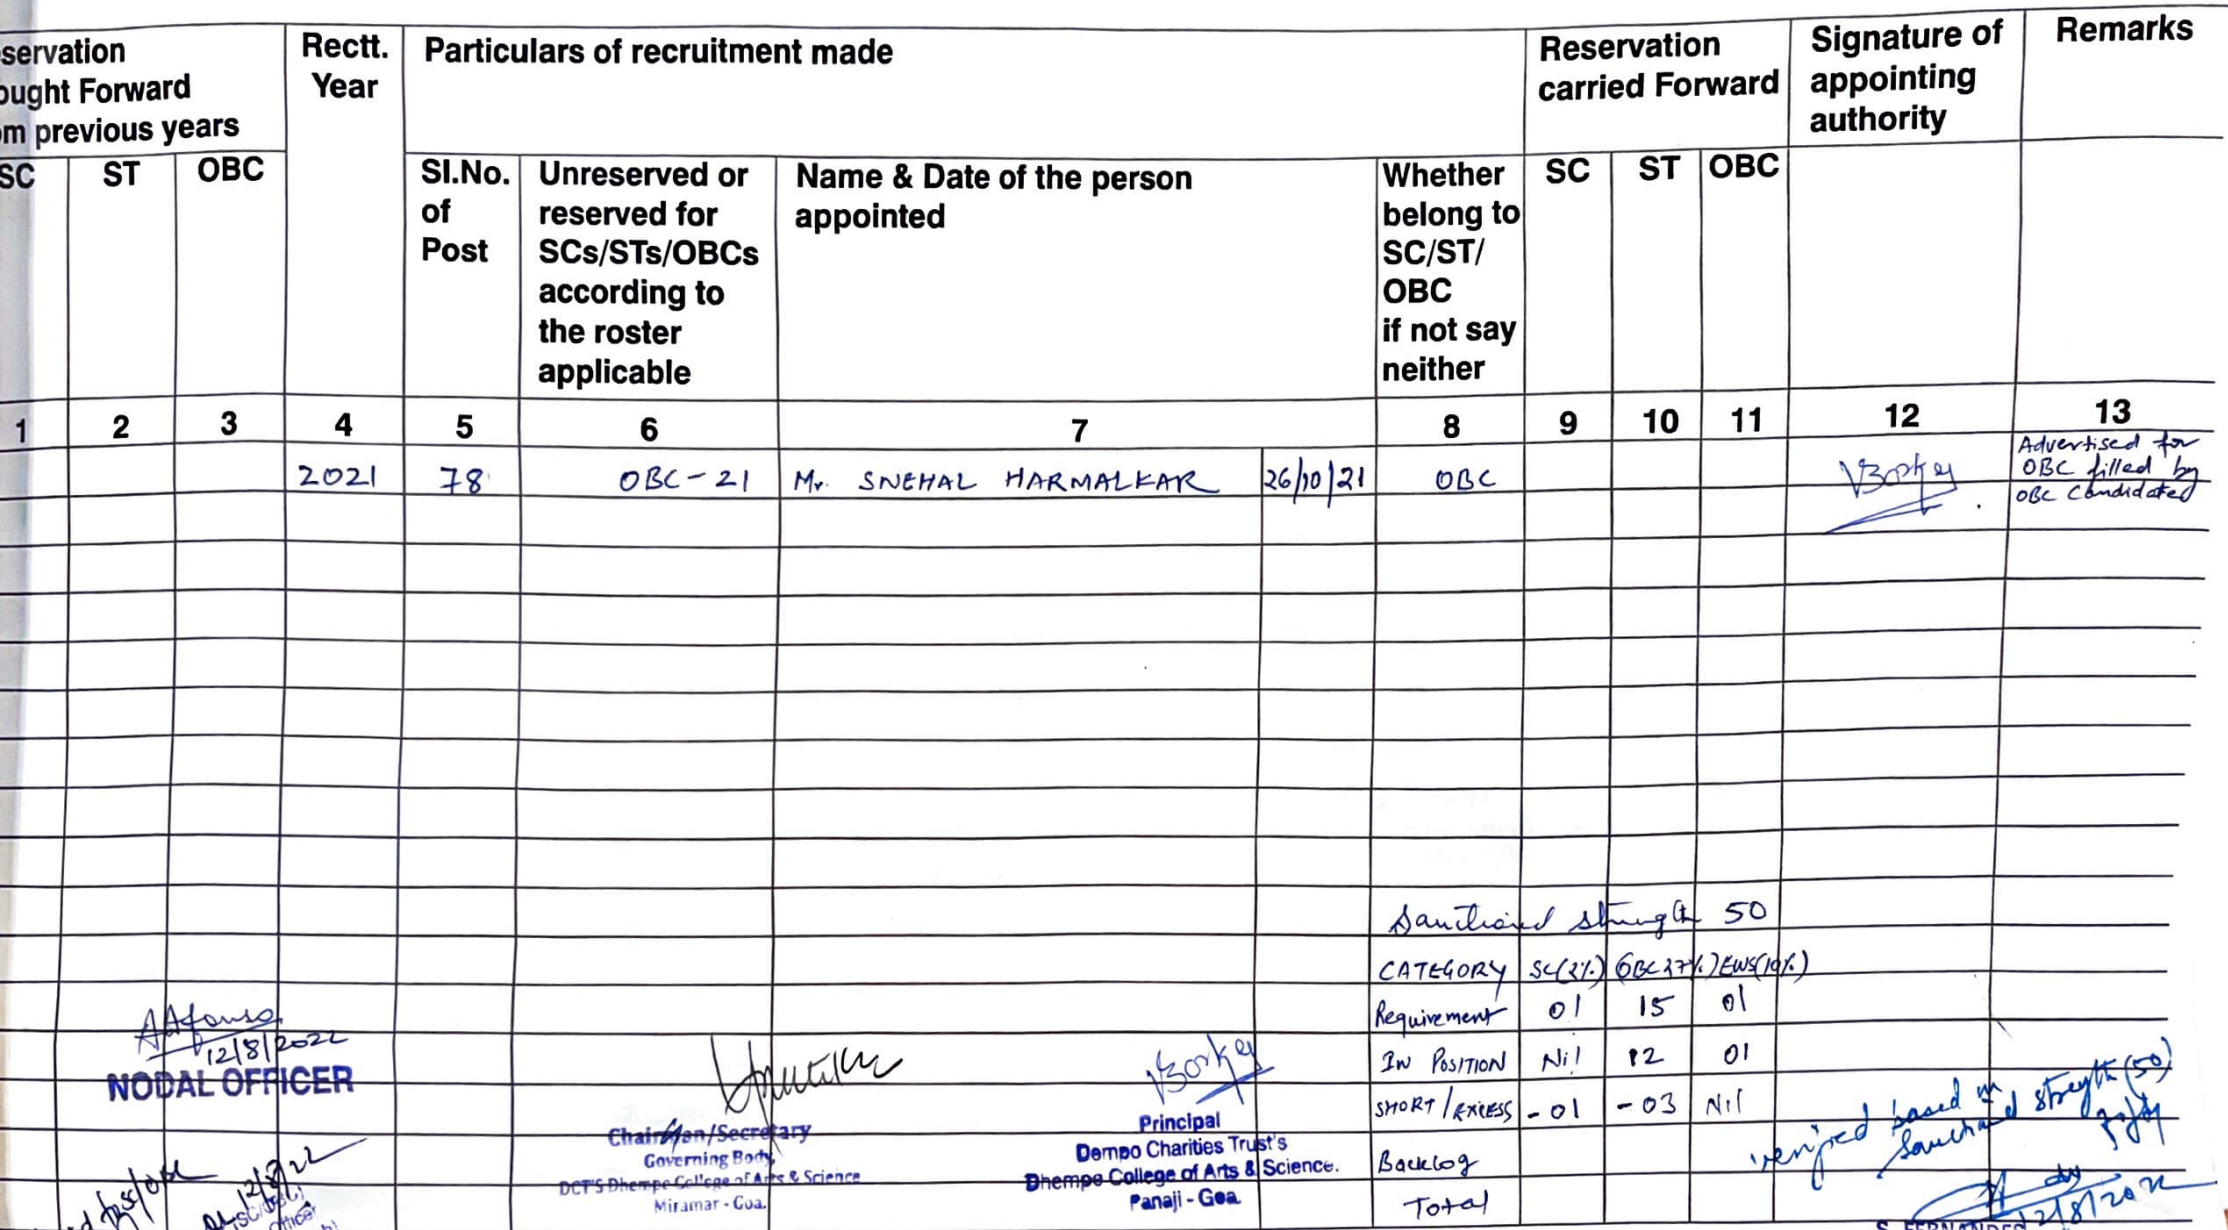 servation
ought Forward
om previous years
Rectt.
Year
Particulars of recruitment made
Reservation
carried Forward
Signature of
appointing
authority
Remarks
SC ST OBC
Sl.No.
of
Post
Unreserved or
reserved for
SCs/STs/OBCs
according to
the roster
applicable
Name & Date of the person
appointed
Whether
belong to
SC/ST/
OBC
if not say
neither
SC ST OBC
1 2 3 4 5 6 7 8 9 10 11 12 13
2021 78 OBC-21 Mr. SNEHAL HARMALKAR 26/10/21 OBC
Advertised for
OBC filled by
OBC Candidated
Sanctioned strength 50
CATEGORY SC(2%) OBC27%) EWS(10%)
Requirement 01 15 01
IN POSITION Nil 12 01
SHORT/EXCESS -01 -03 Nil
Backlog
Total
AAfonso
12/8/2022
NODAL OFFICER
12/8/22
Chairman/Secretary
Governing Body
DCT'S Dhempe College of Arts & Science
Miramar - Goa.
VBorkey
Principal
Dempo Charities Trust's
Dhempe College of Arts & Science.
Panaji - Goa
verified based on
Sanctioned strength (50)
12/8/2022
S. FERNANDES